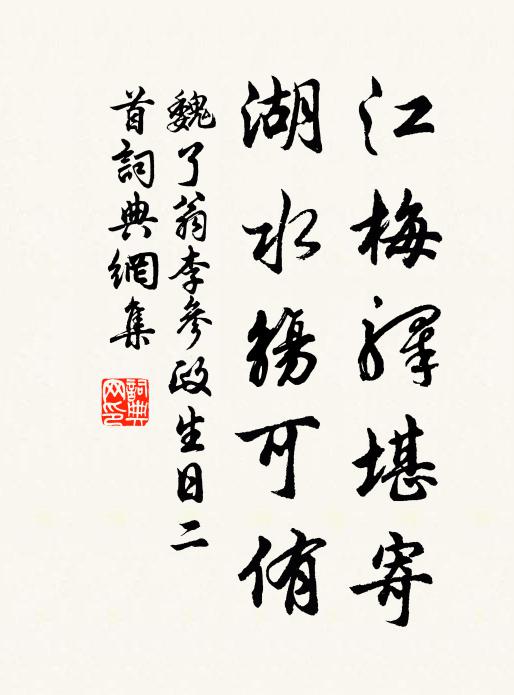 江梅驛堪寄
湖水觴可侑
魏了翁李參政生日二
首詞典網集
詞典
网印